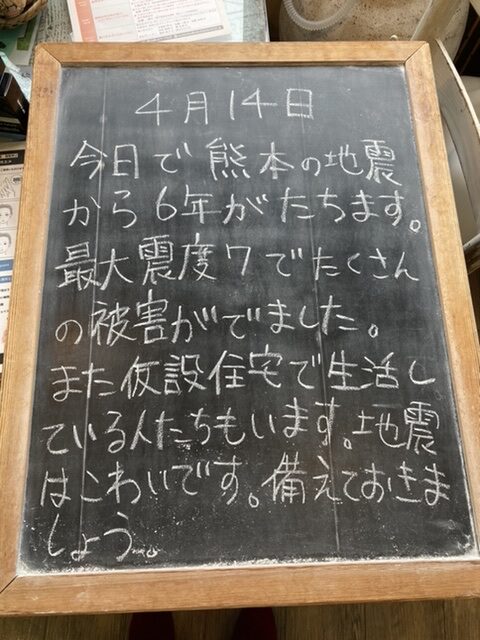 4月14日
今日で熊本の地震
から6年がたちます。
最大震度7でたくさん
の被害がでました。
また仮設住宅で生活し
ている人たちもいます。地震
はこわいです。備えておきま
しょう。